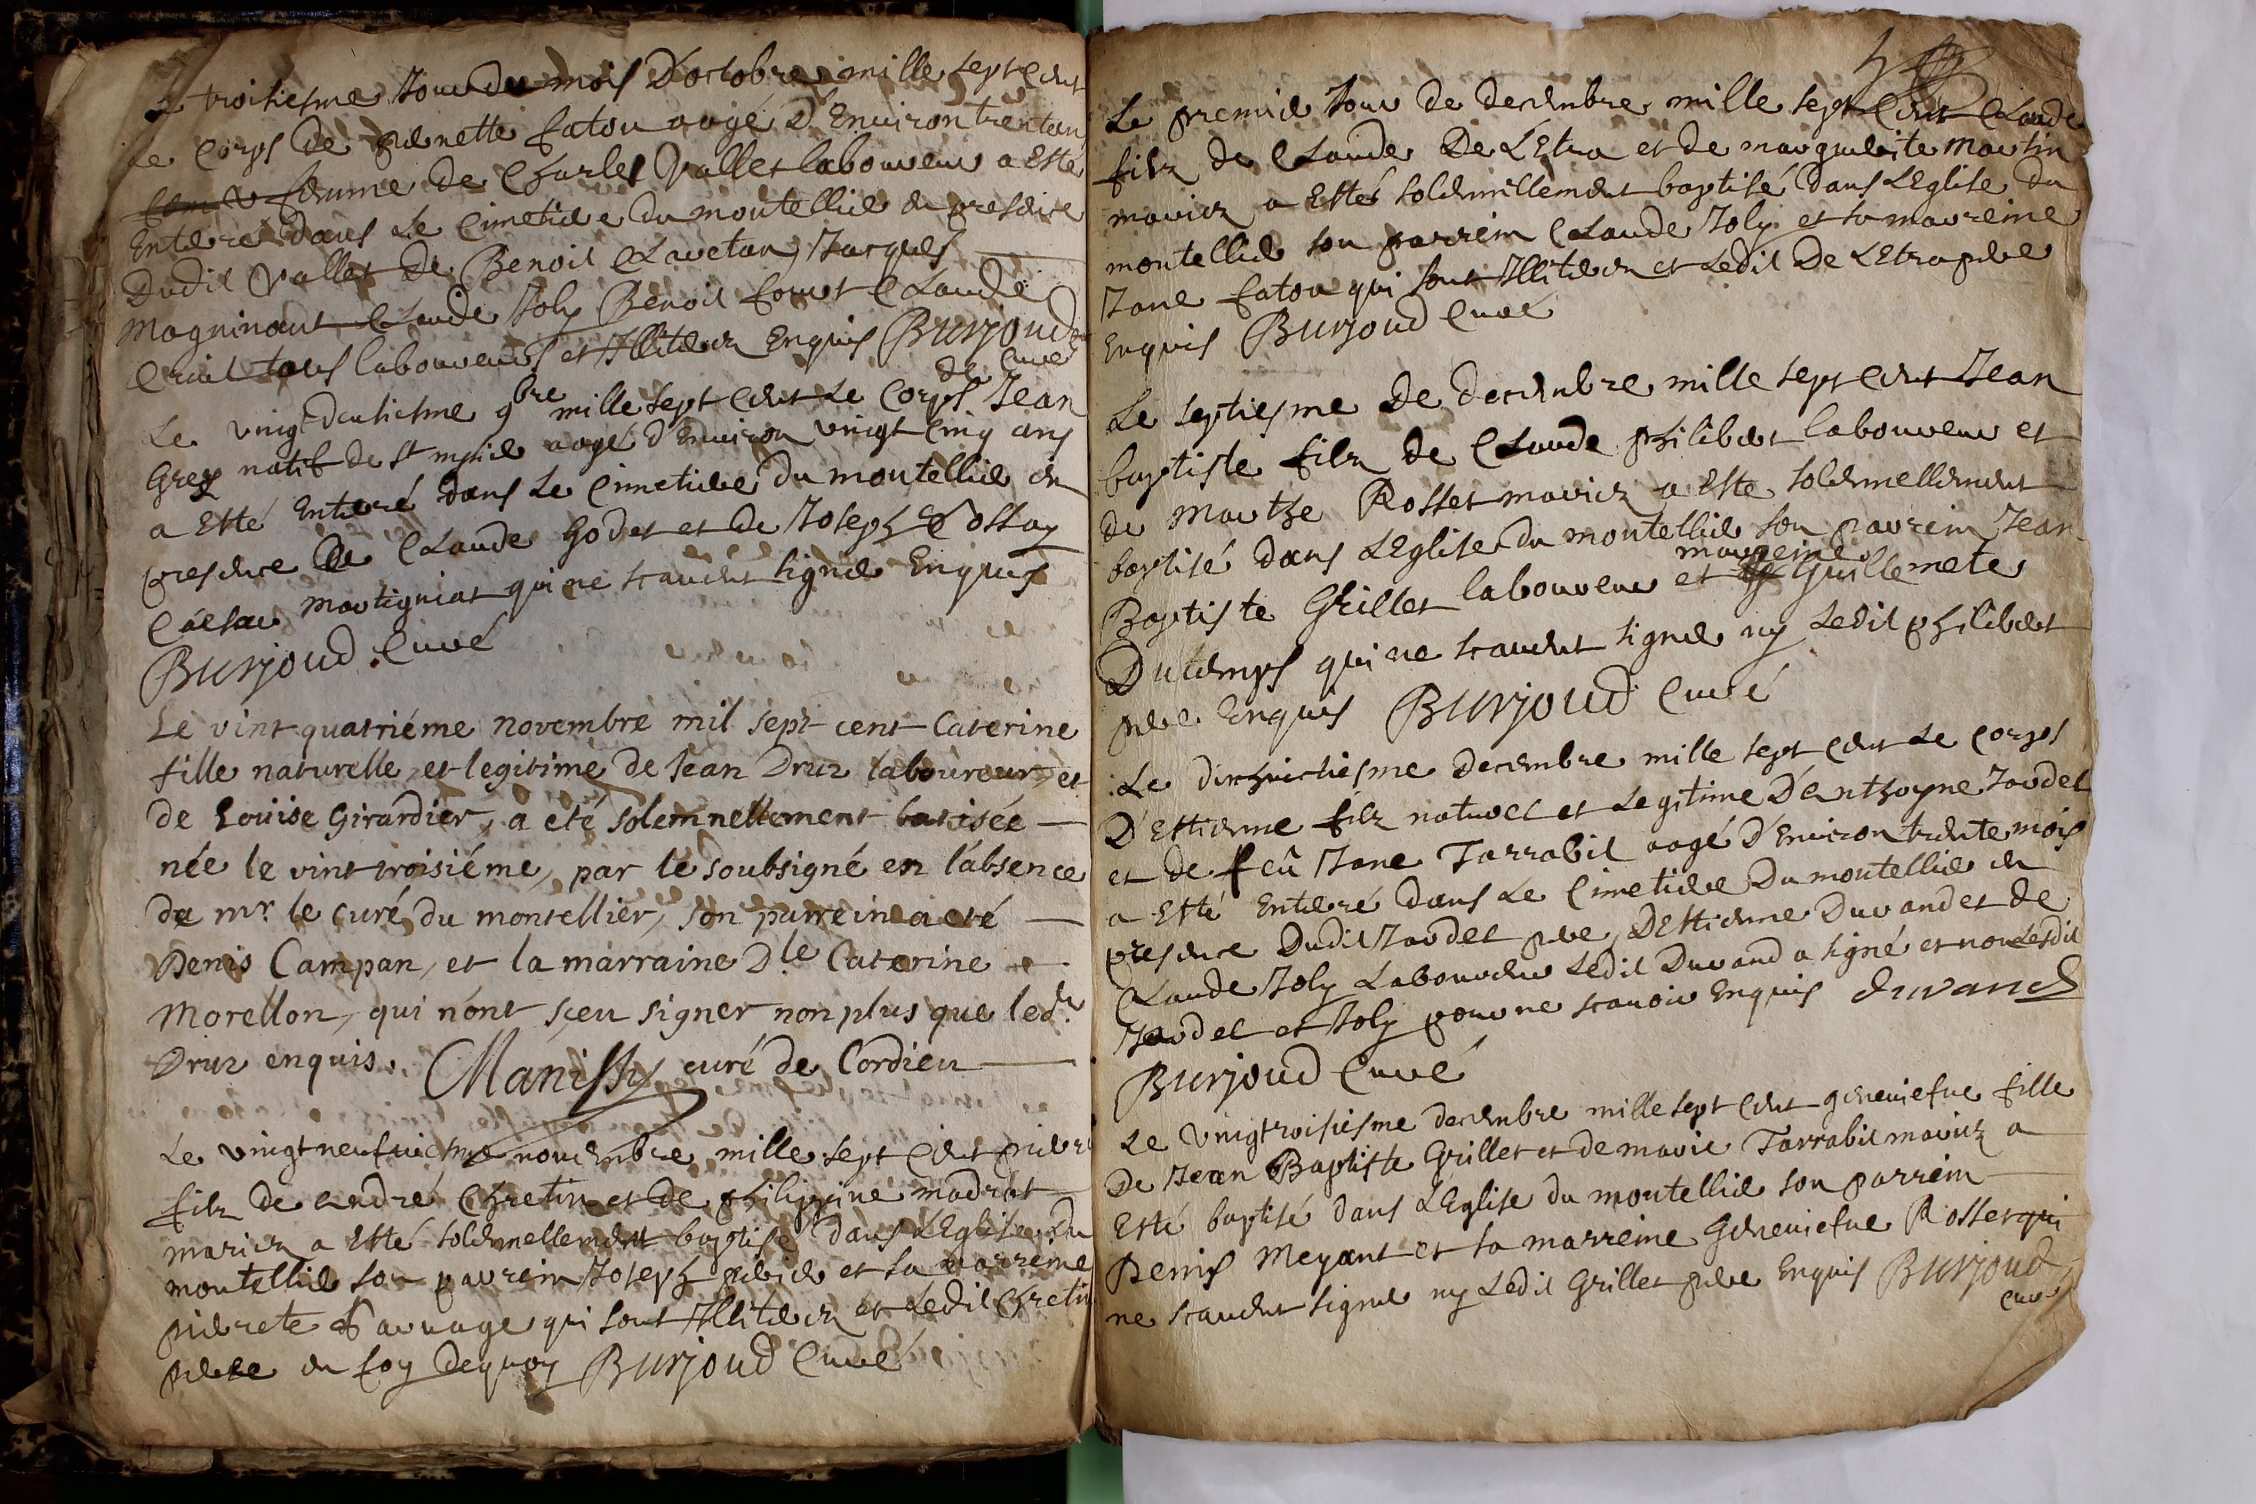 Le troisiesme Jour du mois D'octobre mille sept cent
Le Corps de pernette fatou aagé D'Environ trentan
femme de Charles Vallet laboureur a Esté
Enterré dans Le Cimetiere du montellier en presence
Dudit Vallet De Benoit Clavetan Jacques
Magninant Claude Joly Benoit fornet Claude
Cruil tous laboureurs et Illiterez Enquis Burjoud
curé
Le vingtdeusiesme 9bre mille sept Cent Le Corps de Jean
Grey natif de St aagé d'Environ vingt cinq ans
a Esté Enterré dans Le Cimetiere du montellier en
presence De Claude Godet et de Joseph Cossay
Caesar martigniat qui ne scavent signer Enquis
Burjoud Curé
Le vint quatriéme novembre mil sept cent Caterine
fille naturelle, et legitime de Jean Druz laboureur, et
de Loüise Girardier, a eté solemnellement batisée —
née le vint troisiéme, par le soubsigné en l'absence
de mr. le curé du montellier, son parrein a eté —
Denis Campan, et la marraine Dle Caterine —
Morellon, qui n'ont sçeu signer non plus que led.
Druz enquis. Manissy curé de Cordieu —
Le vingtneufviesme novembre mille sept Cent pierre
filz de André Chretin et de philippine madrat
mariez a Esté solemnellement baptisé dans L'Eglise Du
montellier son parrein Joseph perier et sa marreine
pierrete Sauvage qui sont Illiterez et Ledit Chretin
pere en foy Dequoy Burjoud Curé
Le premier Jour de decembre mille sept Cent Claude
filz de Claude De L'Etra et de marguerite Martin
mariez a Esté solemnillement baptisé dans L'Eglise du
montellier son parrein Claude Joly et sa marreine
Jane fatou qui sont Illiterez et Ledit De L'Etra pere
Enquis Burjoud Curé
Le septiesme De Decembre mille sept Cent Jean
baptiste filz de Claude philibert laboureur et
de Marthe Rosset mariez a Esté solemnellement
baptisé dans L'Eglise du montellier son parrein Jean
marreine
Baptiste Grillet laboureur et Guillemete
Dutemps qui ne scavent signer ny Ledit philibert
pere Enquis Burjoud Curé
Le dixhuictiesme Decembre mille sept cent Le Corps
D'Estienne filz naturel et Legitime D'Anthoyne Jardet
et de feü Jane Tarrabit aagé d'Environ trente mois
a Esté Enterré dans Le Cimetiere Du montellier en
presence Dudit Jardet pere, D'Estienne Durand et de
Claude Joly Laboureurs Ledit Durand a signé et non Lesdit
Jardet et Joly pour ne scavoir Enquis durand
Burjoud Curé
Le Vingtroisiesme decembre mille sept Cent geneviefve fille
De Jean Baptiste Grillet et de marie Tarrabit mariez a
Esté baptisé dans L'Eglise du montellier son parrein
Denis Meyant et sa marreine Geneviefve Rosset qui
ne scavent signer ny Ledit Grillet pere Enquis Burjoud
curé